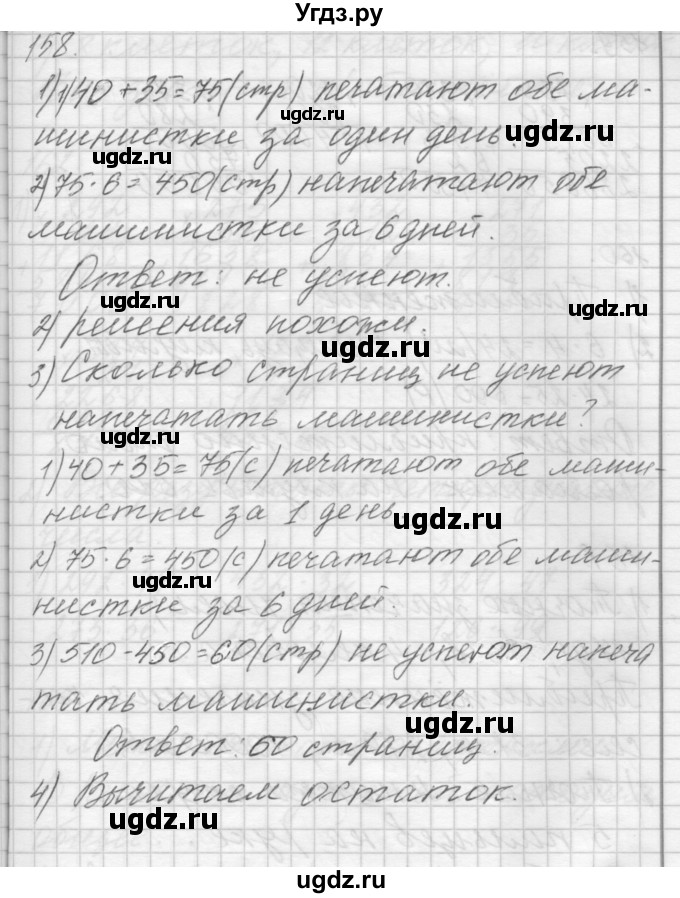 Угдз.ру
158.
1)1)40+35=75(стр) печатают обе ма-
шинистки за один день.
2)75·6=450(стр) напечатают обе
машинистки за 6 дней.
Ответ: не успеют.
2) решения похожи.
3) Сколько страниц не успеют
напечатать машинистки?
1)40+35=75(с) печатают обе маши-
нистки за 1 день
2) 75·6=450(с) печатают обе маши-
нистки за 6 дней.
3)510-450=60(стр) не успеют напеча
тать машинистки.
Ответ: 60 страниц.
4) Вычитаем остаток.
ugdz.ru
ugdz.ru
ugdz.ru
ugdz.ru
ugdz.ru
ugdz.ru
ugdz.ru
ugdz.ru
ugdz.ru
ugdz.ru
ugdz.ru
ugdz.ru
ugdz.ru
ugdz.ru